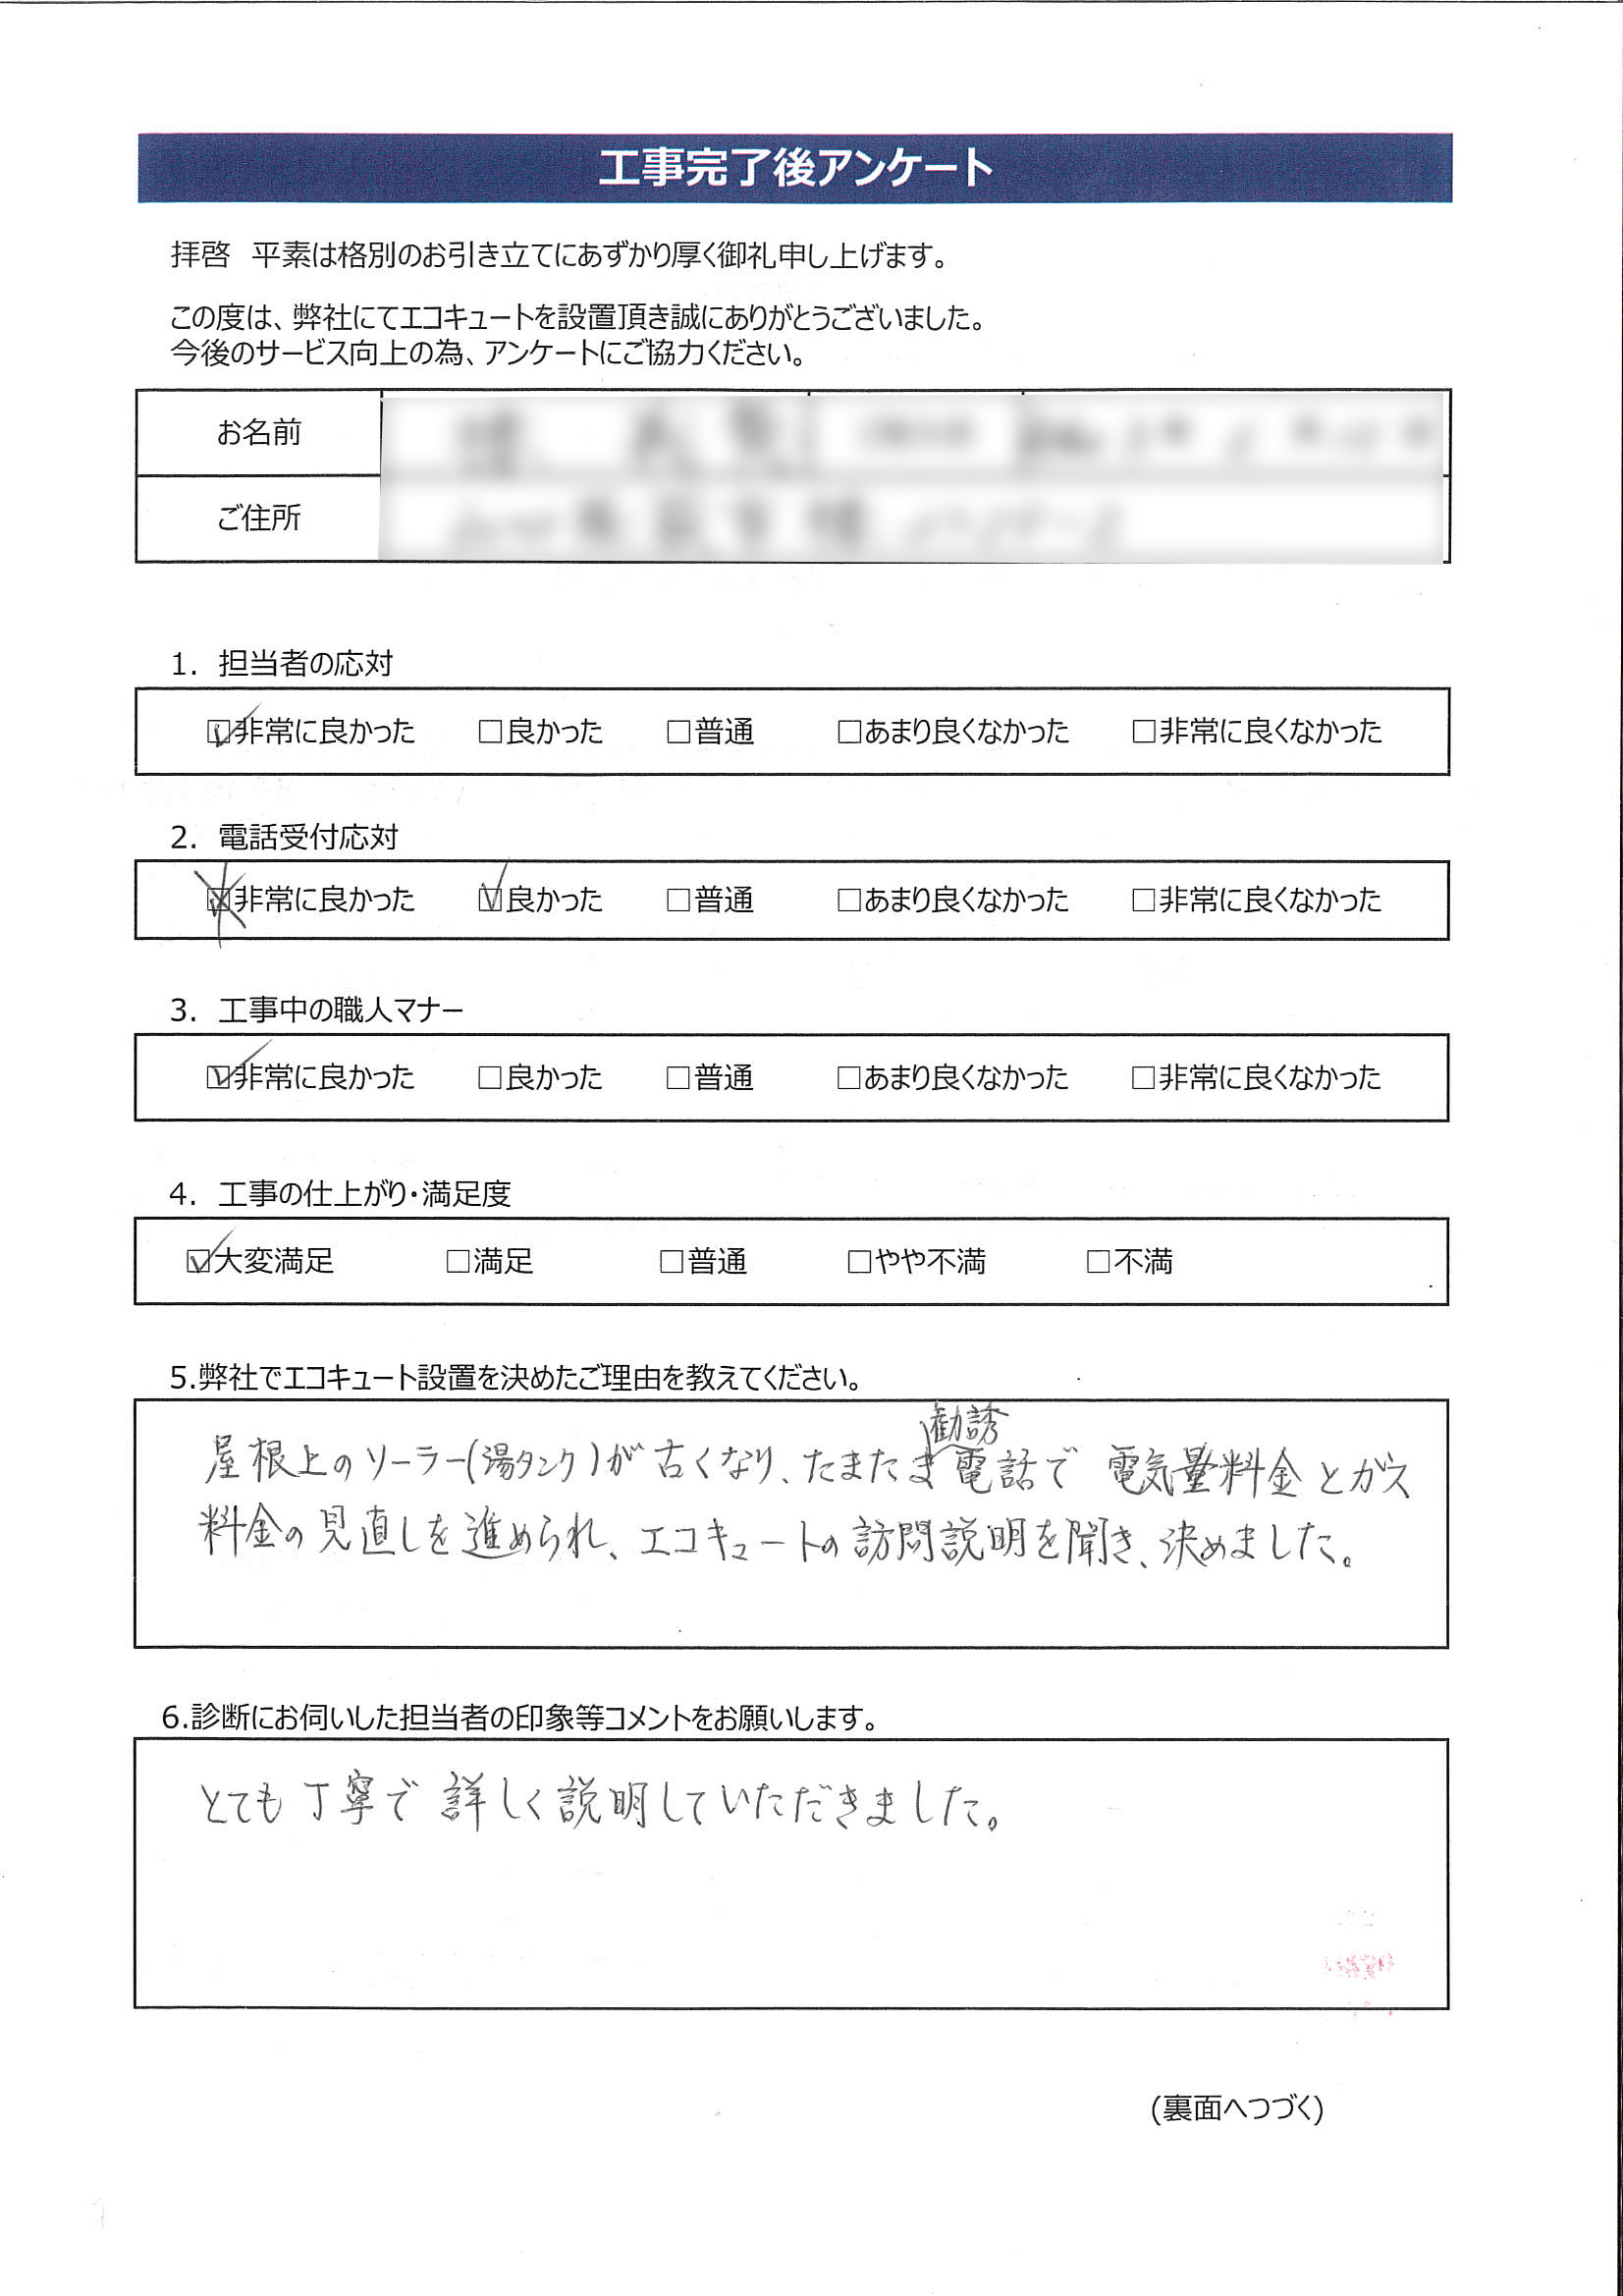 工事完了後アンケート
拝啓 平素は格別のお引き立てにあずかり厚く御礼申し上げます。
この度は、弊社にてエコキュートを設置頂き誠にありがとうございました。
今後のサービス向上の為、アンケートにご協力ください。
お名前
ご住所
1. 担当者の応対
☑非常に良かった □良かった □普通 □あまり良くなかった □非常に良くなかった
2. 電話受付応対
☒非常に良かった ☑良かった □普通 □あまり良くなかった □非常に良くなかった
3. 工事中の職人マナー
☑非常に良かった □良かった □普通 □あまり良くなかった □非常に良くなかった
4. 工事の仕上がり・満足度
☑大変満足 □満足 □普通 □やや不満 □不満
5.弊社でエコキュート設置を決めたご理由を教えてください。
屋根上のソーラー(湯タンク)が古くなり、たまたま勧誘電話で 電気量料金とガス
料金の見直しを進められ、エコキュートの訪問説明を聞き、決めました。
6.診断にお伺いした担当者の印象等コメントをお願いします。
とても丁寧で詳しく説明していただきました。
(裏面へつづく)